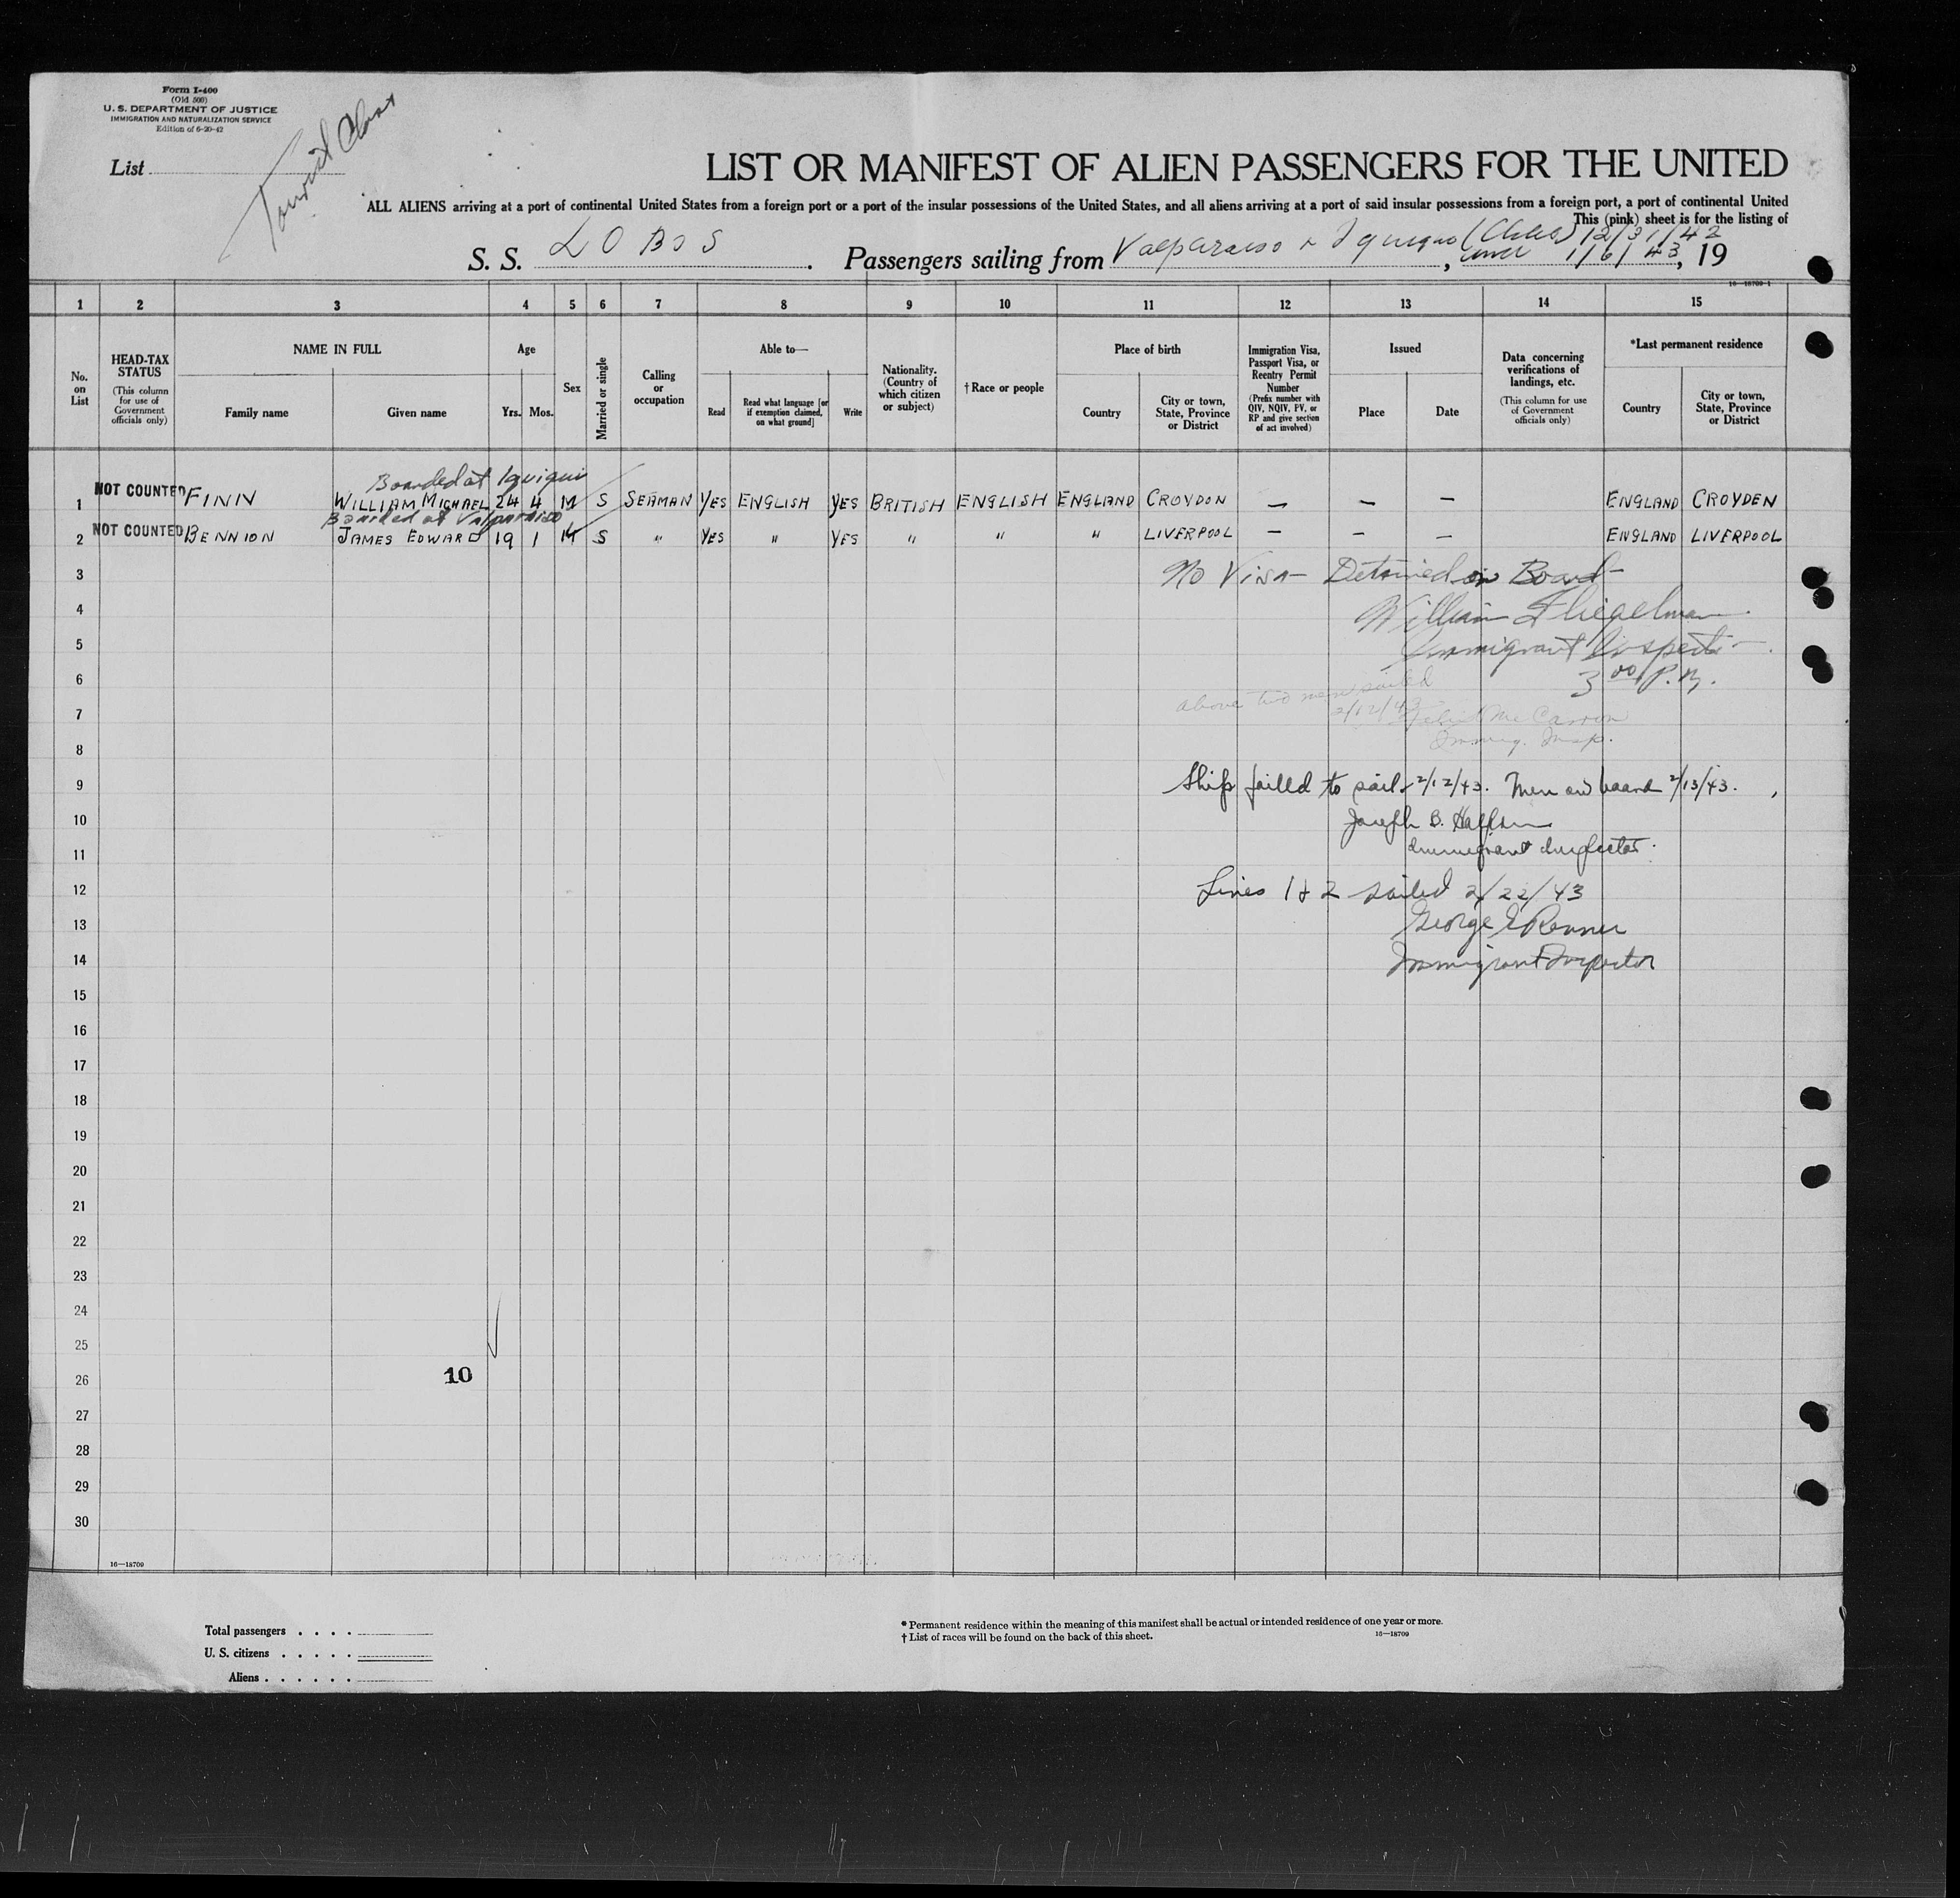 Form I-400
(Old 500)
U. S. DEPARTMENT OF JUSTICE
IMMIGRATION AND NATURALIZATION SERVICE
Edition of 6-20-42
Tourist Class
List
LIST OR MANIFEST OF ALIEN PASSENGERS FOR THE UNITED
ALL ALIENS arriving at a port of continental United States from a foreign port or a port of the insular possessions of the United States, and all aliens arriving at a port of said insular possessions from a foreign port, a port of continental United
This (pink) sheet is for the listing of
S. S. LOBOS. Passengers sailing from Valparaiso + Iquique (Chile) 12/31/42, 1/6/43, 19
16—18709-1
1 2 3 4 5 6 7 8 9 10 11 12 13 14 15
No. on List
HEAD-TAX STATUS (This column for use of Government officials only)
NAME IN FULL
Family name
Given name
Age
Yrs. Mos.
Sex
Married or single
Calling or occupation
Able to—
Read
Read what language [or if exemption claimed, on what ground]
Write
Nationality. (Country of which citizen or subject)
† Race or people
Place of birth
Country
City or town, State, Province or District
Immigration Visa, Passport Visa, or Reentry Permit Number (Prefix number with QIV, NQIV, PV, or RP and give section of act involved)
Issued
Place
Date
Data concerning verifications of landings, etc. (This column for use of Government officials only)
*Last permanent residence
Country
City or town, State, Province or District
Boarded at Iquique
1 NOT COUNTED FINN WILLIAM MICHAEL 24 4 M S SEAMAN YES ENGLISH YES BRITISH ENGLISH ENGLAND CROYDON — — — ENGLAND CROYDEN
Boarded at Valparaiso
2 NOT COUNTED BENNION JAMES EDWARD 19 1 M S " YES " YES " " " LIVERPOOL — — — ENGLAND LIVERPOOL
3 No Visa - Detained on Board -
4 William Fliegelman
5 Immigrant Inspector
6 3 00 P.M.
above two men sailed
7 2/12/43 McCarron
8 Immig. Insp.
9 Ship failed to sail 2/12/43. Men on board 2/13/43.
10 Joseph B.
11 Immigrant Inspector
12 Lines 1 & 2 sailed 2/22/43
13 George E Renner
14 Immigrant Inspector
15
16
17
18
19
20
21
22
23
24
25
26 10
27
28
29
30
16—18709
Total passengers . . . .
U. S. citizens . . . . .
Aliens . . . . . .
* Permanent residence within the meaning of this manifest shall be actual or intended residence of one year or more.
† List of races will be found on the back of this sheet.
16—18709